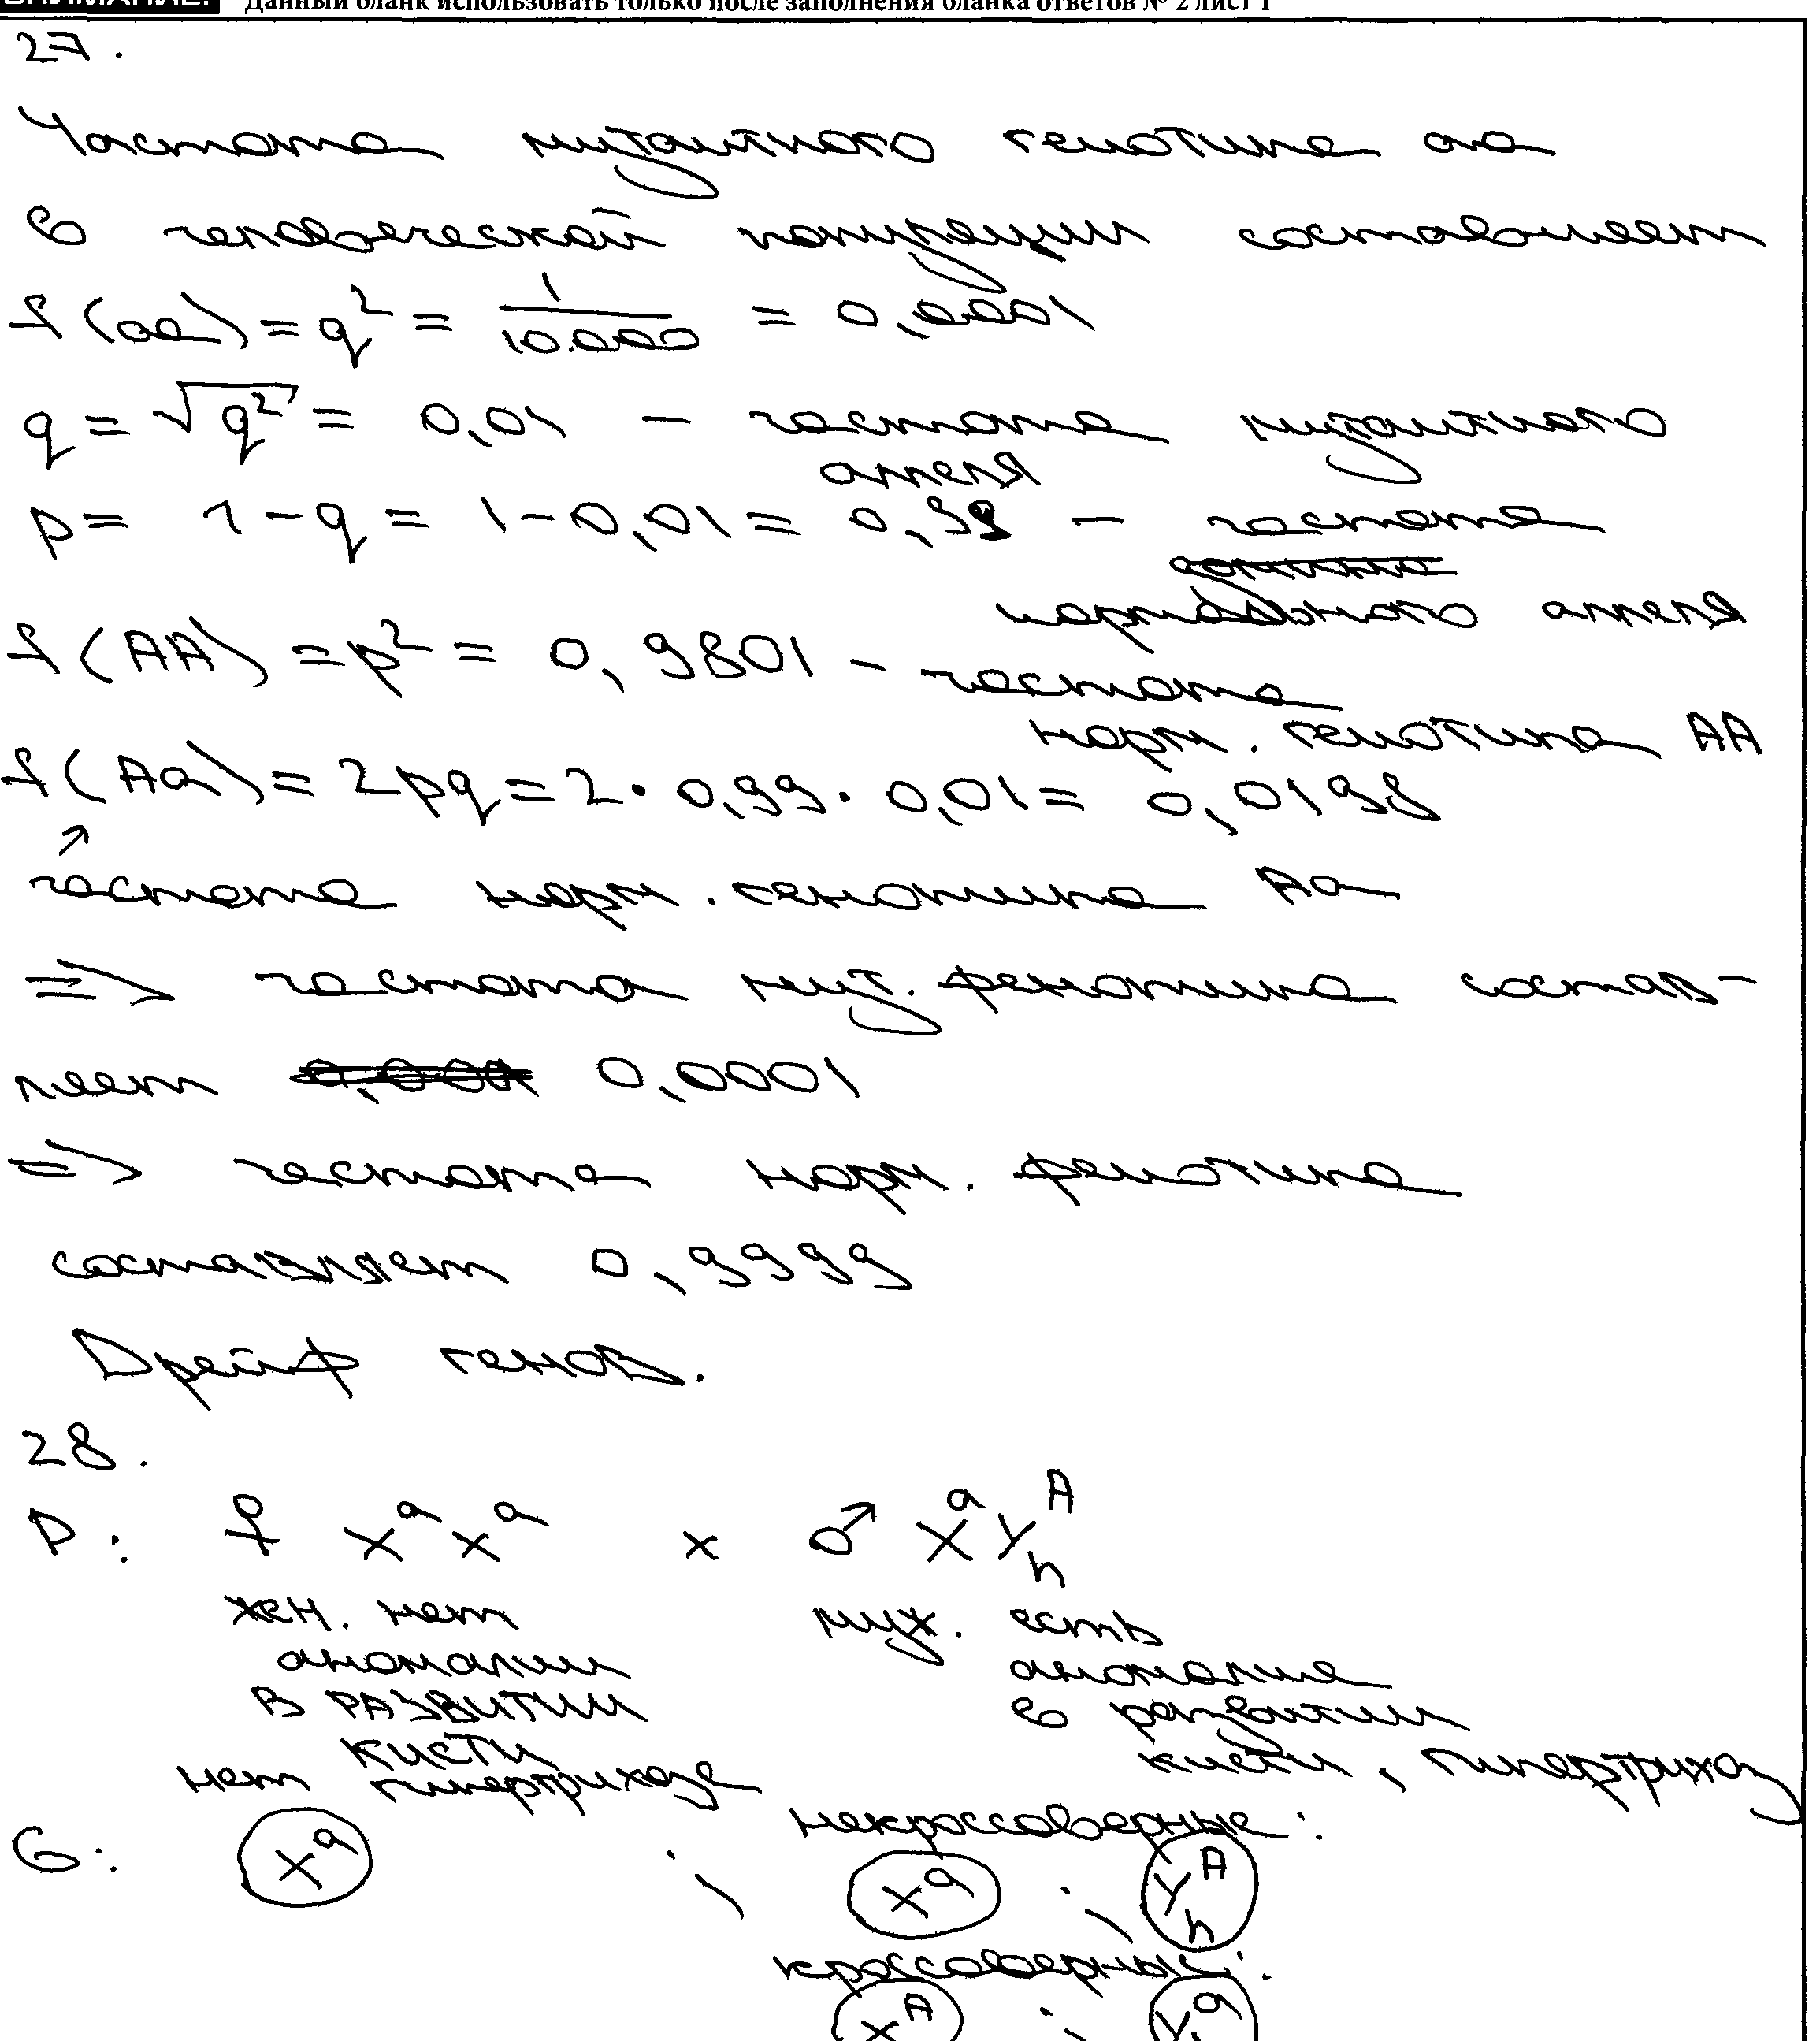 Данный бланк использовать только после заполнения бланка ответов № 2 лист 1
27.
Частота мутантного генотипа аа
в человеческой популяции составляет
f(aa) = q² = 1/10.000 = 0,0001
q = √q² = 0,01 – частота мутантного
аллеля
p = 1 - q = 1 - 0,01 = 0,99 – частота
нормального аллеля
f(AA) = p² = 0,9801 – частота
норм. генотипа AA
f(Aa) = 2pq = 2 · 0,99 · 0,01 = 0,0198
↗
частота норм. генотипа Aa
=> частота мут. фенотипа состав-
ляет 0,0001
=> частота норм. фенотипа
составляет 0,9999
Дрейф генов.
28.
P: ♀ XᵃXᵃ x ♂ XᵃYₕᴬ
жен. нет муж. есть
аномалии аномалия
в развитии в развитии
кисти кисти, гипертрихоз
нет гипертрихоза
некроссоверные:
G: Xᵃ ; Xᵃ ; Yₕᴬ
кроссоверные:
Xᴬ ; Yᵃ